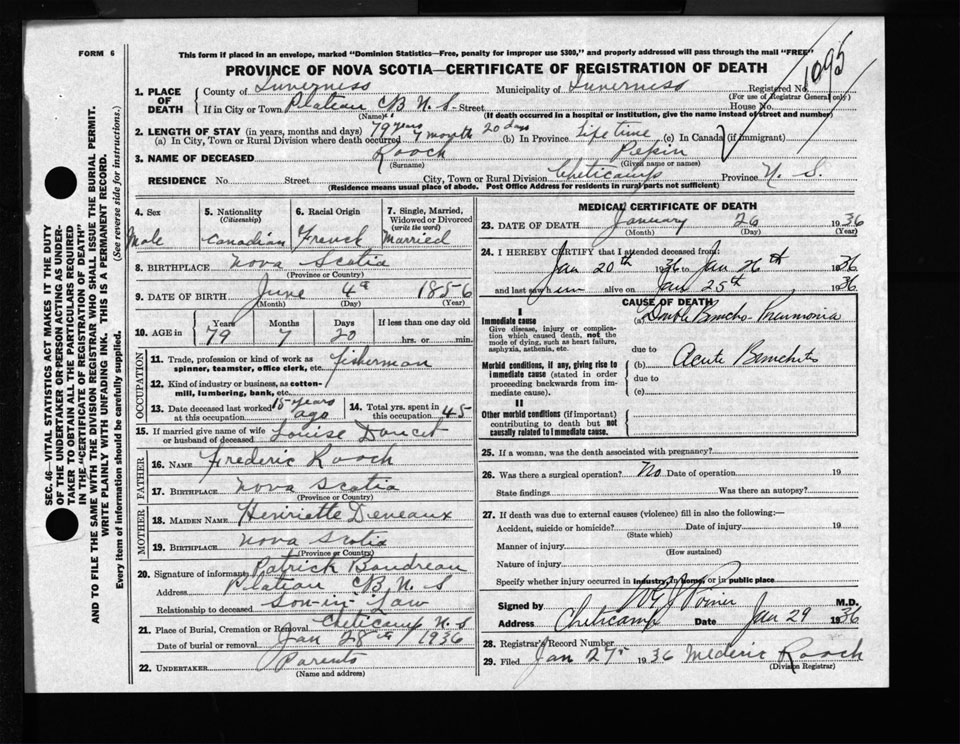 FORM 6
This form if placed in an envelope, marked "Dominion Statistics—Free, penalty for improper use $300," and properly addressed will pass through the mail "FREE"
PROVINCE OF NOVA SCOTIA—CERTIFICATE OF REGISTRATION OF DEATH
1095
SEC. 46—VITAL STATISTICS ACT MAKES IT THE DUTY
OF THE UNDERTAKER OR PERSON ACTING AS UNDER-
TAKER TO OBTAIN ALL THE PARTICULARS REQUIRED
IN THE "CERTIFICATE OF REGISTRATION OF DEATH"
AND TO FILE THE SAME WITH THE DIVISION REGISTRAR WHO SHALL ISSUE THE BURIAL PERMIT.
WRITE PLAINLY WITH UNFADING INK. THIS IS A PERMANENT RECORD.
Every item of information should be carefully supplied. (See reverse side for instructions.)
1. PLACE OF DEATH
County of Inverness Municipality of Inverness Registered No.
(For use of Registrar General only)
If in City or Town Plateau C B N. S. Street House No.
(Name) (If death occurred in a hospital or institution, give name instead of street and number)
2. LENGTH OF STAY (in years, months and days) 79 years 7 month 20 days
(a) In City, Town or Rural Division where death occurred (b) In Province Life time (c) In Canada (if immigrant)
3. NAME OF DECEASED Roach Pepin
(Surname) (Given name or names)
RESIDENCE No. Street City, Town or Rural Division Cheticamp Province N. S.
(Residence means usual place of abode. Post Office Address for residents in rural parts not sufficient)
4. Sex Male
5. Nationality (Citizenship) Canadian
6. Racial Origin French
7. Single, Married, Widowed or Divorced (write the word) Married
8. BIRTHPLACE Nova Scotia
(Province or Country)
9. DATE OF BIRTH June 4 1856
(Month) (Day) (Year)
10. AGE in Years Months Days If less than one day old
79 7 20 hrs. or min.
OCCUPATION
11. Trade, profession or kind of work as spinner, teamster, office clerk, etc. fisherman
12. Kind of industry or business, as cotton-mill, lumbering, bank, etc.
13. Date deceased last worked at this occupation 15 years ago
14. Total yrs. spent in this occupation 45
15. If married give name of wife or husband of deceased Louise Doucet
FATHER
16. NAME Frederic Roach
17. BIRTHPLACE Nova Scotia
(Province or Country)
MOTHER
18. MAIDEN NAME Henriette Deveaux
19. BIRTHPLACE Nova Scotia
(Province or Country)
20. Signature of informant Patrick Boudreau
Address Plateau C B N. S
Relationship to deceased Son-in-law
21. Place of Burial, Cremation or Removal Cheticamp N S
Date of burial or removal Jan 28th 1936
22. UNDERTAKER Parents
(Name and address)
MEDICAL CERTIFICATE OF DEATH
23. DATE OF DEATH January 26 1936
(Month) (Day) (Year)
24. I HEREBY CERTIFY that I attended deceased from:
Jan 20th 1936 to Jan 26th 1936
and last saw him alive on Jan 25th 1936
CAUSE OF DEATH
I
Immediate cause (a) Double Broncho-Pneumonia
Give disease, injury or complication which caused death, not the mode of dying, such as heart failure, asphyxia, asthenia, etc.
due to
Morbid conditions, if any, giving rise to immediate cause (stated in order proceeding backwards from immediate cause).
(b) Acute Bronchitis
due to
(c)
II
Other morbid conditions (if important) contributing to death but not causally related to immediate cause.
25. If a woman, was the death associated with pregnancy?
26. Was there a surgical operation? No Date of operation 19
State findings Was there an autopsy?
27. If death was due to external causes (violence) fill in also the following:—
Accident, suicide or homicide? Date of injury 19
(State which)
Manner of injury
(How sustained)
Nature of injury
Specify whether injury occurred in Industry, in home, or in public place
Signed by Poirier M.D.
Address Cheticamp Date Jan 29 1936
28. Registrar's Record Number
29. Filed Jan 27 1936 Mederic Roach
(Division Registrar)